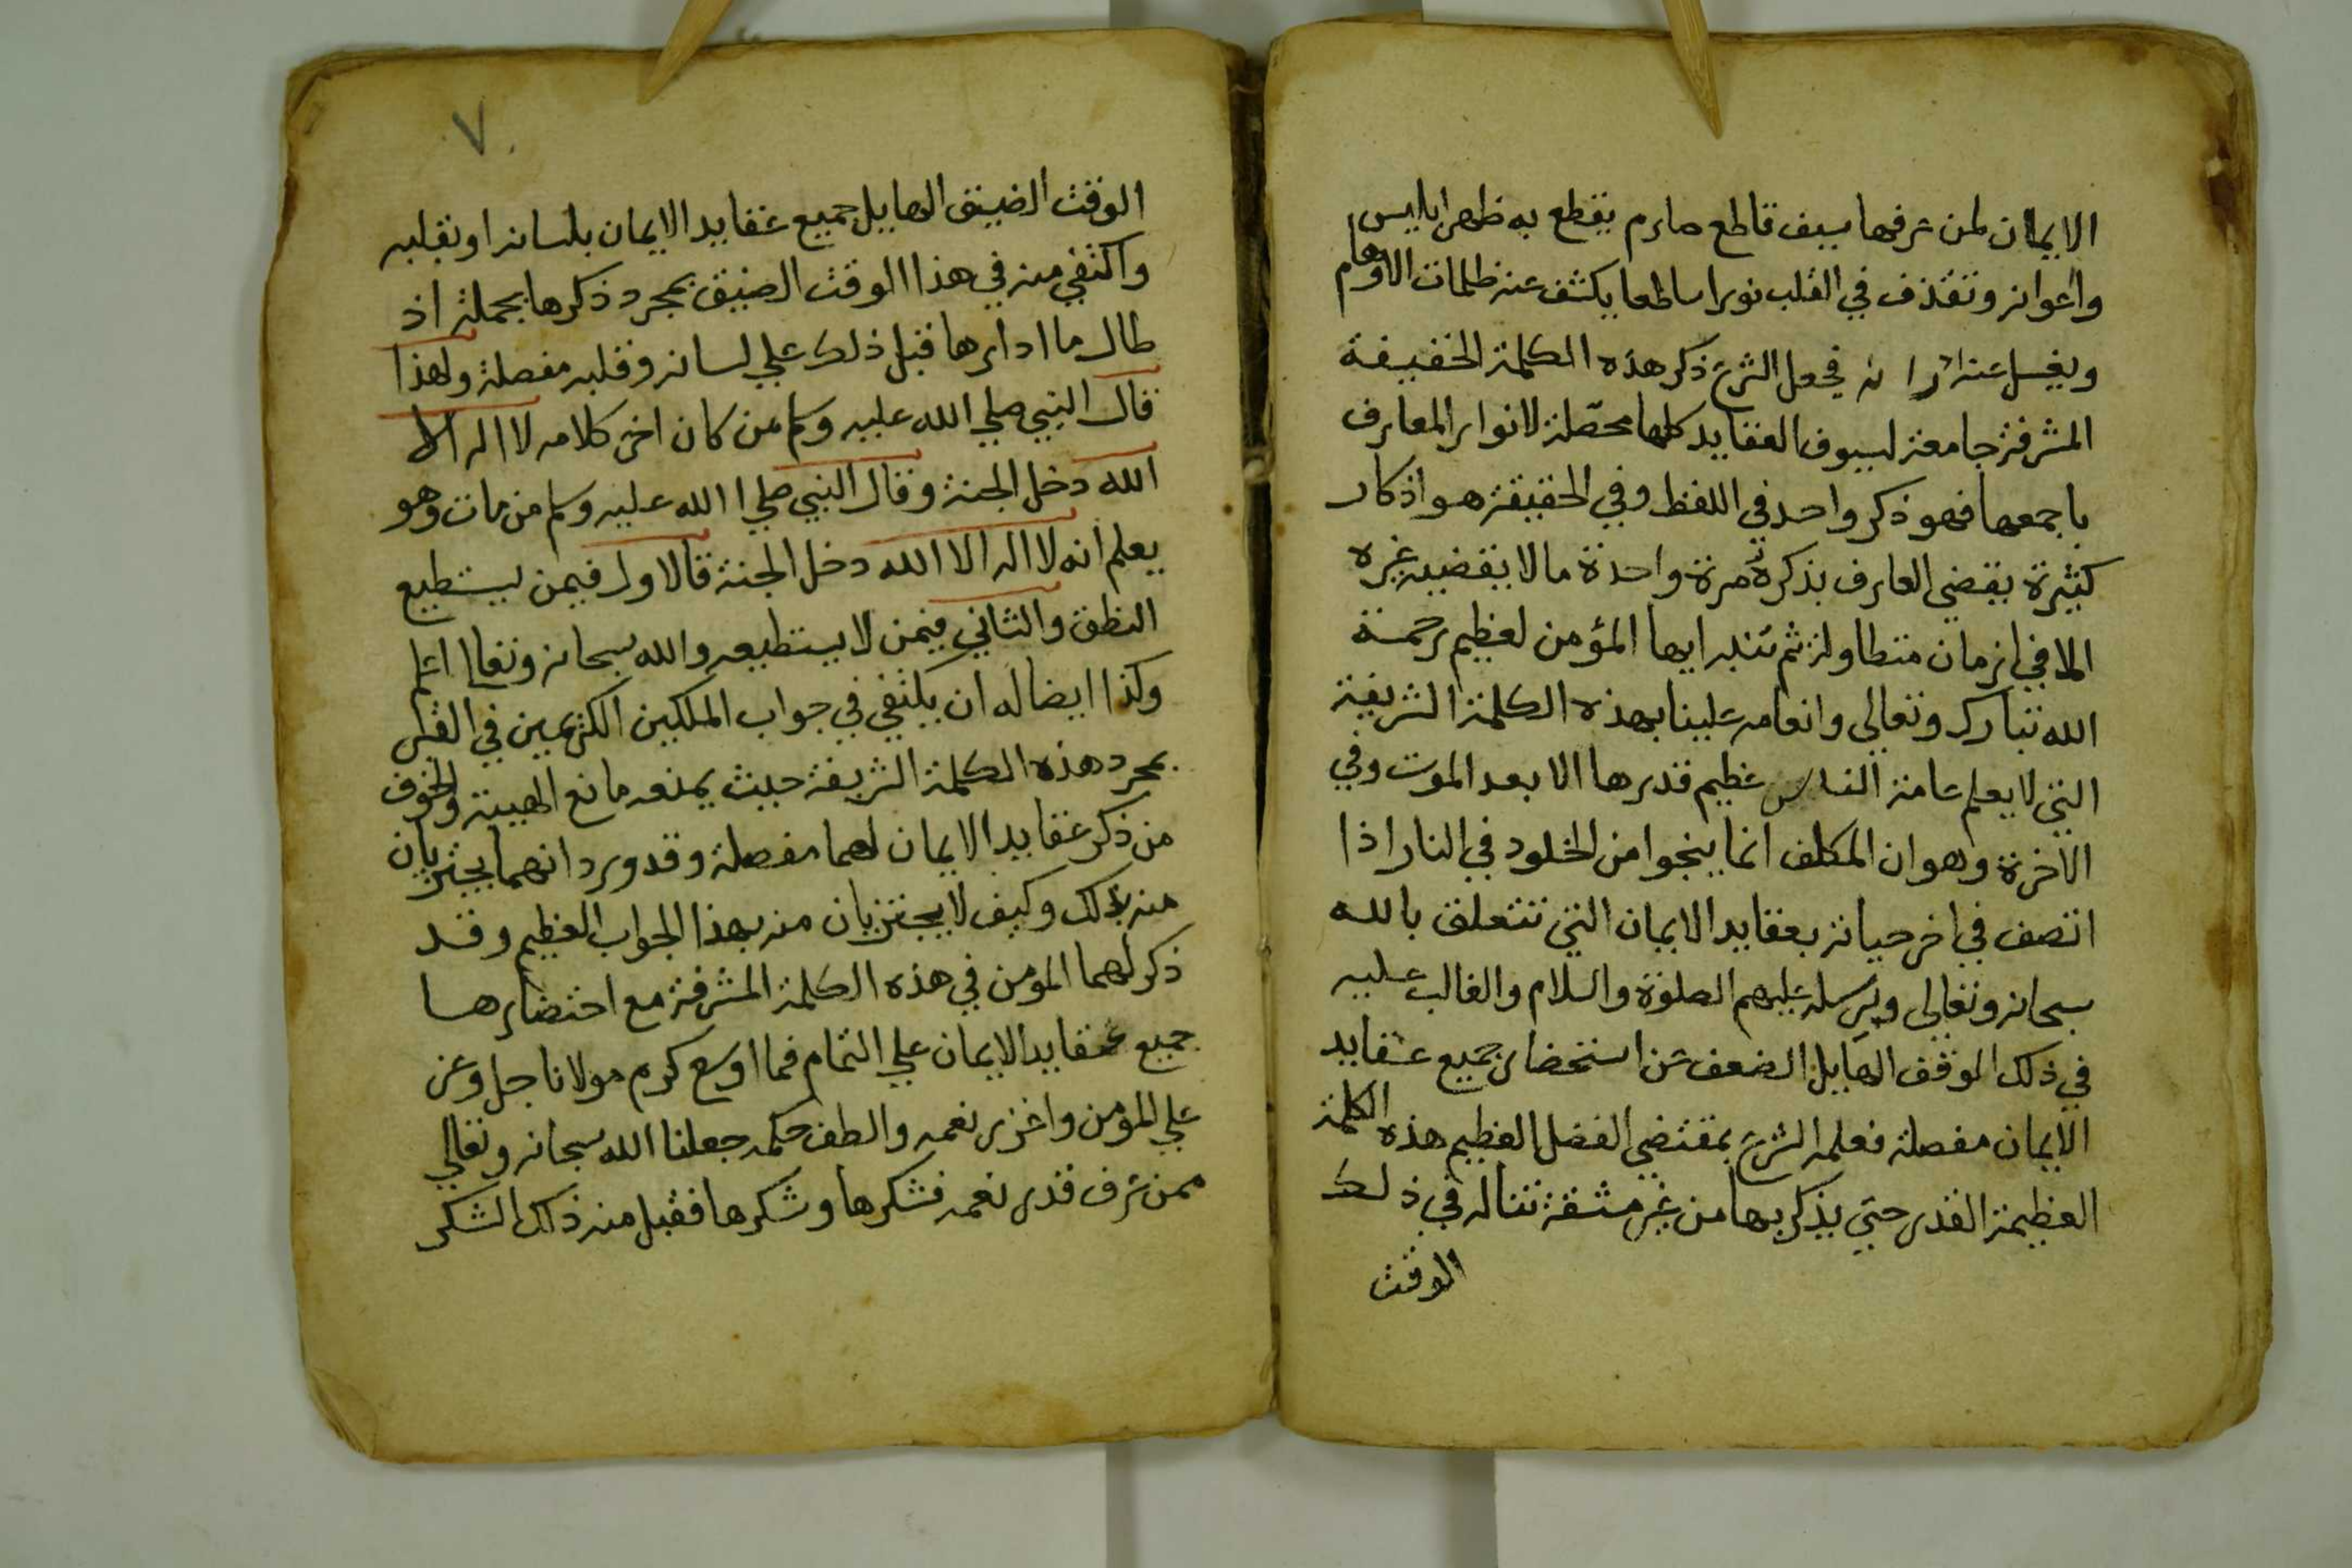 الايمان لمن عرفها سيف قاطع صارم يقطع به ظهر ابليس
واعوانه وتقذف في القلب نورا ساطعا يكشف عنه ظلمات الاوهام
ويغسل عنه فجعل الشرع ذكر هذه الكلمة الخفيفة
المشرفة جامعة لسيوف العقايد كلها محصّلة لانوار المعارف
باجمعها فهو ذكر واحد في اللفظ وفي الحقيقة هو اذكار
كثيرة يقضي العارف بذكره مرة واحدة ما لا يقضيه غيره
الا في ازمان متطاولة ثم تنبه ايها المؤمن لعظيم رحمة
الله تبارك وتعالى وانعامه علينا بهذه الكلمة الشريفة
التي لا يعلم عامة الناس عظيم قدرها الا بعد الموت وفي
الاخرة وهو ان المكلف انما ينجوا من الخلود في النار اذا
اتصف في اخر حياته بعقايد الايمان التي تتعلق بالله
سبحانه وتعالى وبرسله عليهم الصلوة والسلام والغالب عليه
في ذلك الموقف الهايل الضعف عن استحضار جميع عقايد
الايمان مفصلة فعلمه الشرع بمقتضي الفضل العظيم هذه الكلمة
العظيمة القدر حتي يذكر بها من غير مشقة تناله في ذلك
الوقت
٧
الوقت الضيق الهايل جميع عقايد الايمان بلسانه او بقلبه
واكتفي منه في هذا الوقت الضيق بمجرد ذكرها بجملة اذ
طال ما ادارها قبل ذلك علي لسانه وقلبه مفصلة ولهذا
قال النبي صلي الله عليه وسلم من كان اخر كلامه لا اله الا
الله دخل الجنة وقال النبي صلي الله عليه وسلم من مات وهو
يعلم انه لا اله الا الله دخل الجنة فالاول فيمن يستطيع
النطق والثاني فيمن لا يستطيعه والله سبحانه وتعالى اعلم
وكذا ايضا له ان يكتفي في جواب الملكين الكريمين في القبر
بمجرد هذه الكلمة الشريفة حيث يمنعه مانع الهيبة والخوف
من ذكر عقايد الايمان لهما مفصلة وقد ورد انهما يجتزيان
منه بذلك وكيف لا يجتزيان منه بهذا الجواب العظيم وقد
ذكر لهما المومن في هذه الكلمة المشرفة مع اختصارها
جميع عقايد الايمان علي التمام فما اوسع كرم مولانا جل وعز
علي المؤمن واغزر نعمه والطف حكمه جعلنا الله سبحانه وتعالي
ممن عرف قدر نعمه فشكرها وشكرها فقبل منه ذلك الشكر